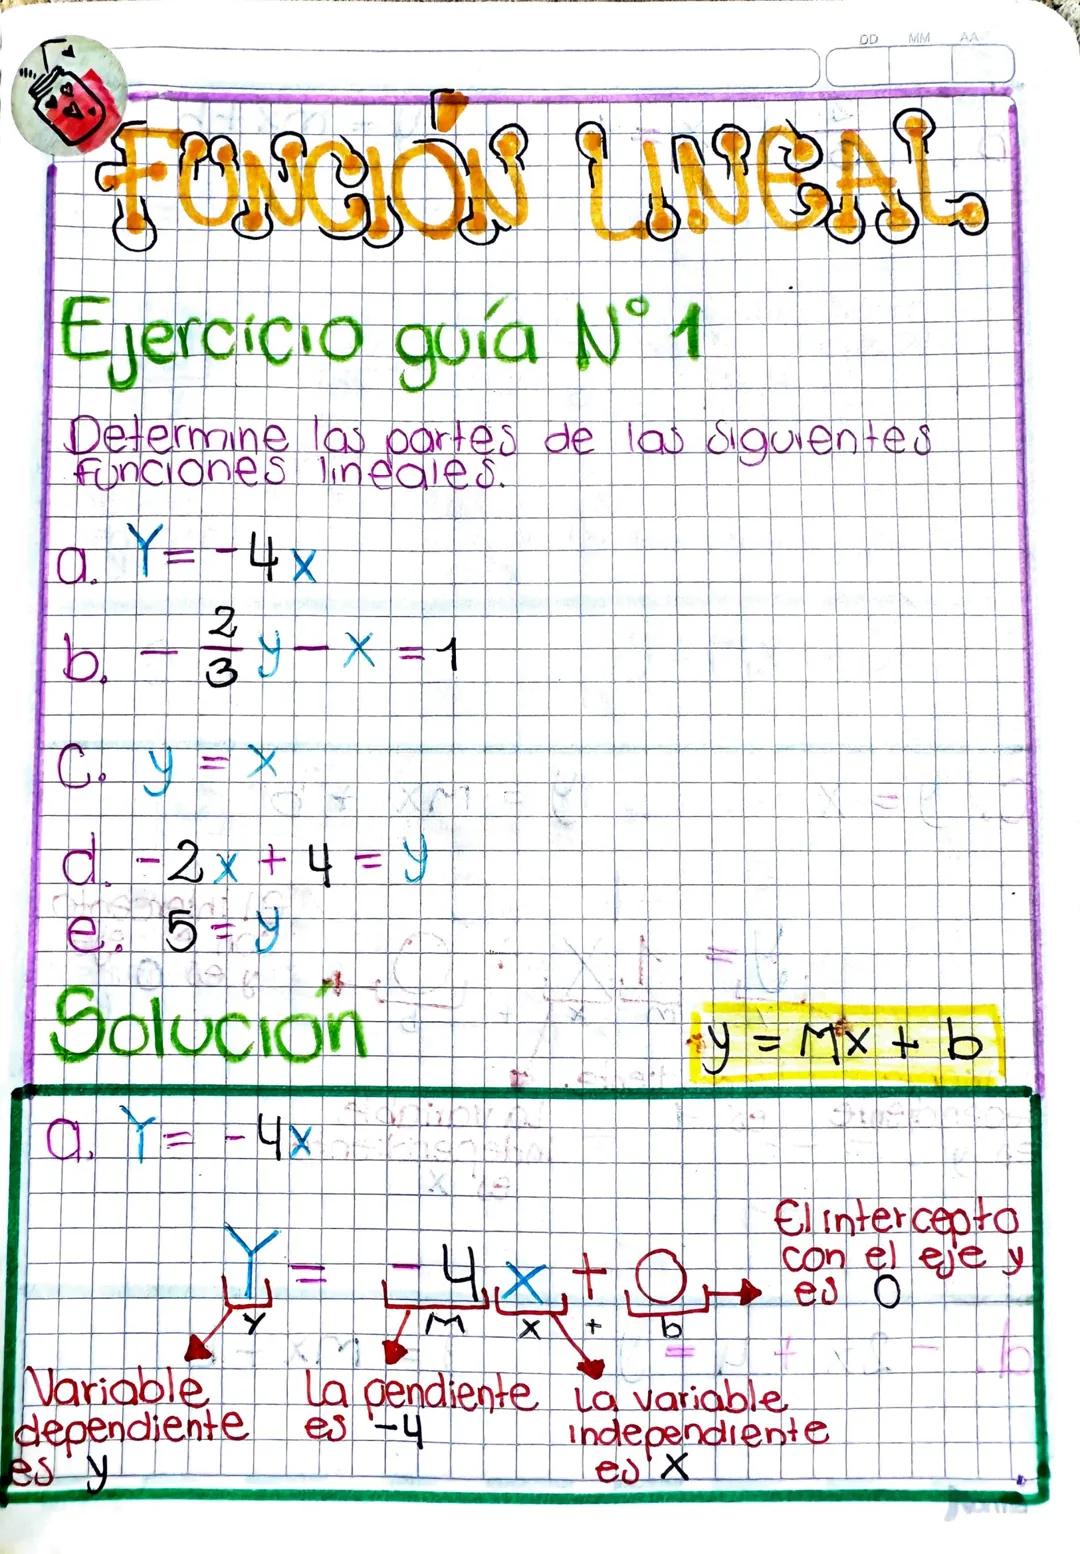 DD MM AA
FUNCIÓN LINEAL
Ejercicio guía N° 1
Determine las partes de las siguientes
funciones lineales.
a. Y = -4x
b. - 2/3 y - x = 1
c. y = x
d. -2x + 4 = y
e. 5 = y
Solución
y = mx + b
a. Y = -4x
Y = -4x + 0
y m x + b
El intercepto
con el eje y
es 0
Variable
dependiente
es y
La pendiente
es -4
La variable
independiente
es x
Norma